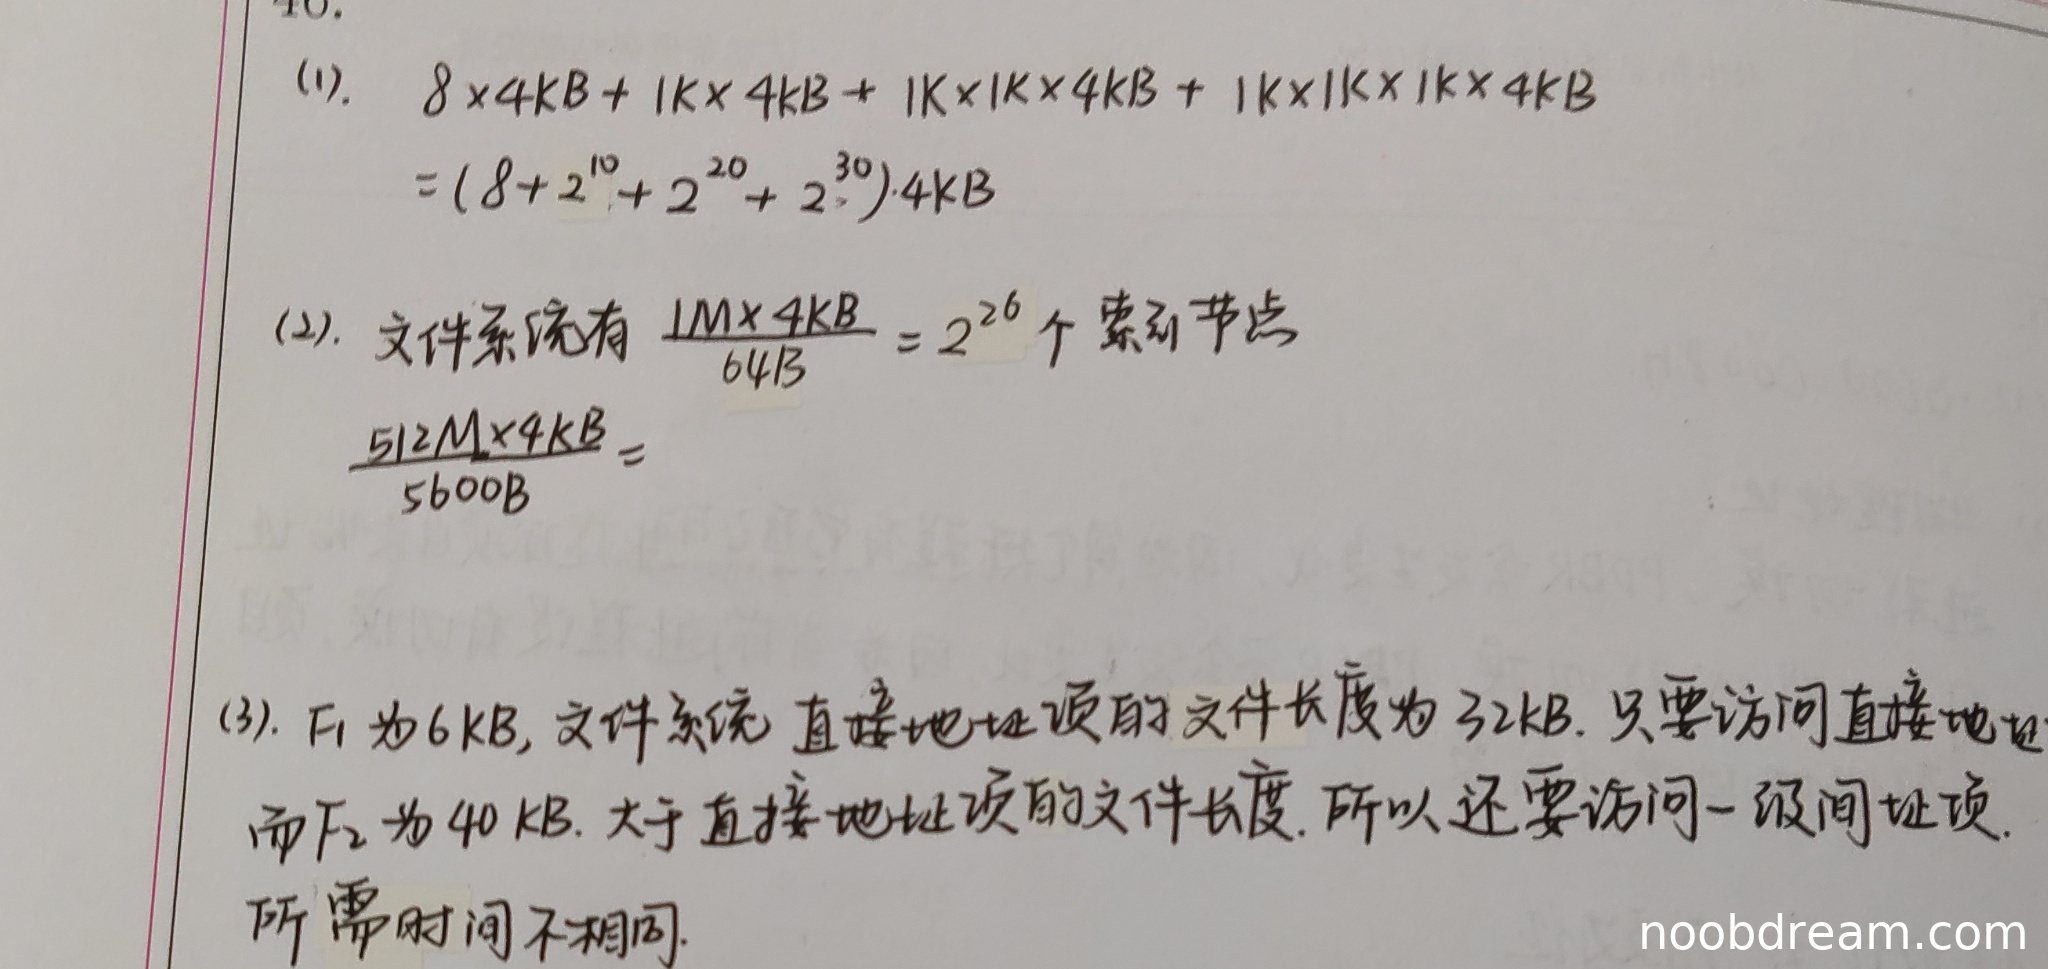 40.
(1). 8×4KB + 1K×4KB + 1K×1K×4KB + 1K×1K×1K×4KB
=(8+2^10+2^20+2^30)·4KB
(2). 文件系统有 1M×4KB/64B = 2^26 个索引节点
512M×4KB/5600B =
(3). F1 为6KB, 文件系统 直接地址项的文件长度为32KB. 只要访问直接地址
而F2 为40KB. 大于直接地址项的文件长度. 所以还要访问一级间址项.
所需时间不相同.
noobdream.com